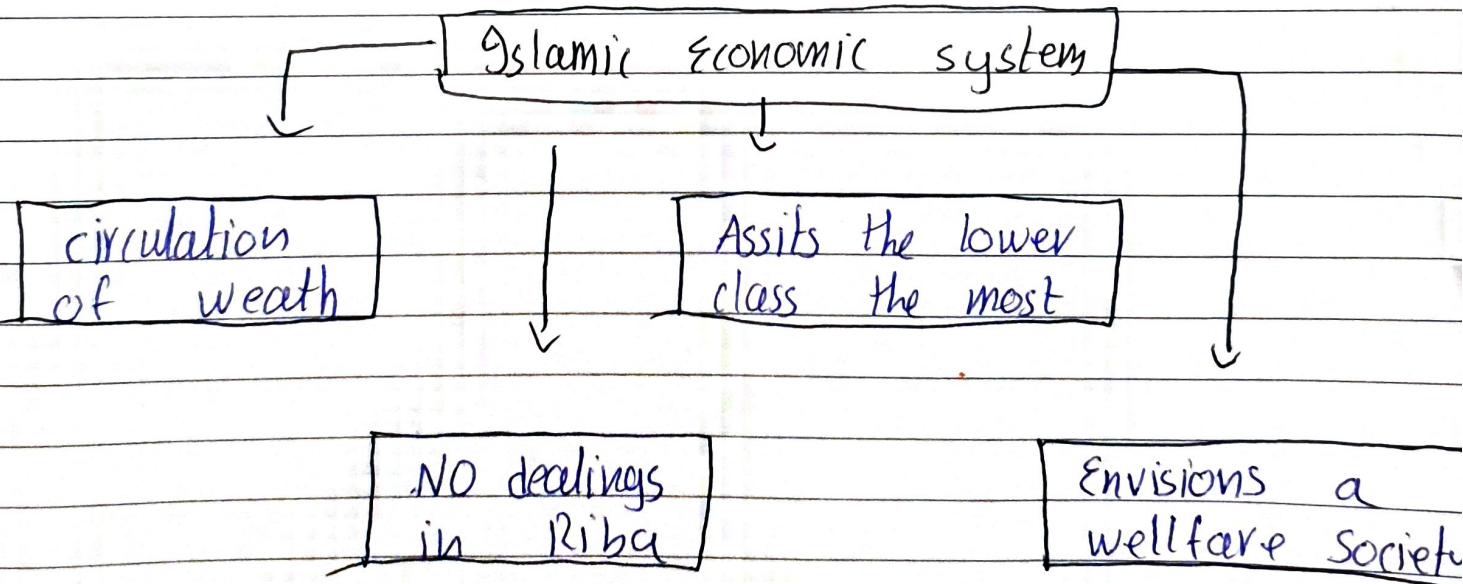 Islamic Economic system
circulation
of weath
Assits the lower
class the most
NO dealings
in Riba
Envisions a
wellfare Society